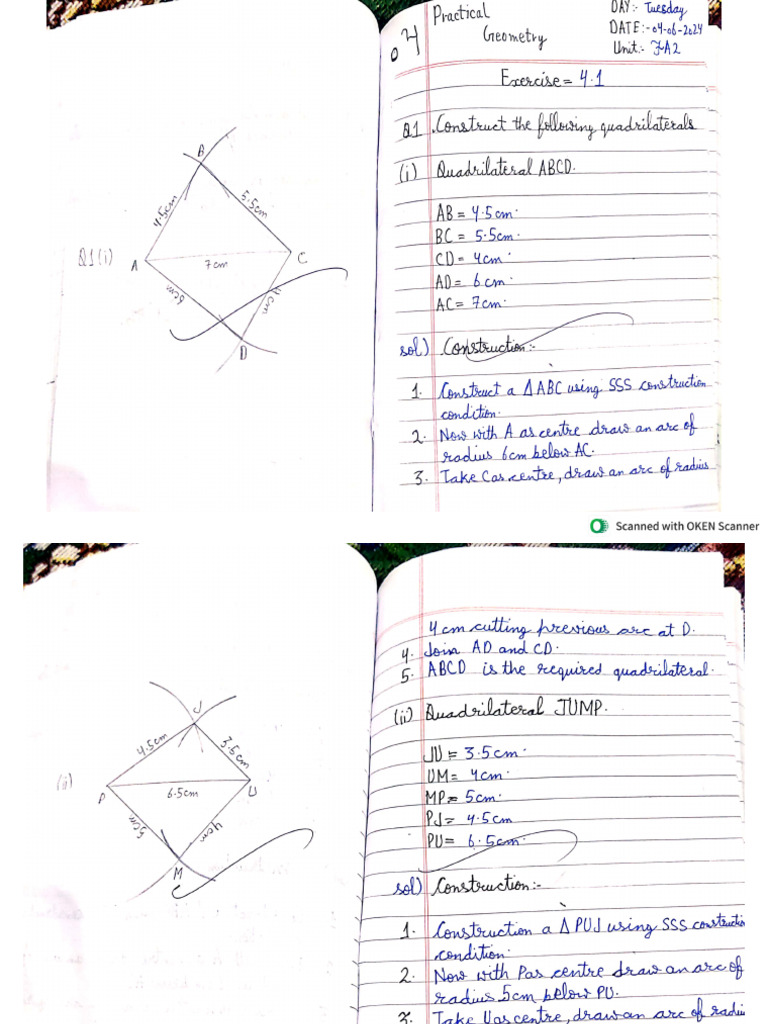 04
Practical
Geometry
DAY:- Tuesday
DATE:-04-06-2024
Unit:- FA2
Exercise= 4.1
Q1 .Construct the following quadrilaterals
(i) Quadrilateral ABCD.
AB= 4.5cm.
BC= 5.5cm.
CD= 4cm.
AD= 6cm.
AC= 7cm.
sol) Construction:-
1. Construct a Δ ABC using SSS construction
condition.
2. Now with A as centre draw an arc of
radius 6cm below AC.
3. Take C as centre, draw an arc of radius
Q1(i)
B
4.5cm
5.5cm
A
7cm
C
6cm
4cm
D
Scanned with OKEN Scanner
4cm cutting previous arc at D.
4. Join AD and CD.
5. ABCD is the required quadrilateral.
(ii) Quadrilateral JUMP.
JU= 3.5cm.
UM= 4cm.
MP= 5cm.
PJ= 4.5cm
PU= 6.5cm.
sol) Construction:-
1. Construction a Δ PUJ using SSS construction
condition.
2. Now with P as centre draw an arc of
radius 5cm below PU.
3. Take U as centre, draw an arc of radiu
(ii)
J
4.5cm
3.5cm
P
6.5cm
U
5cm
4cm
M